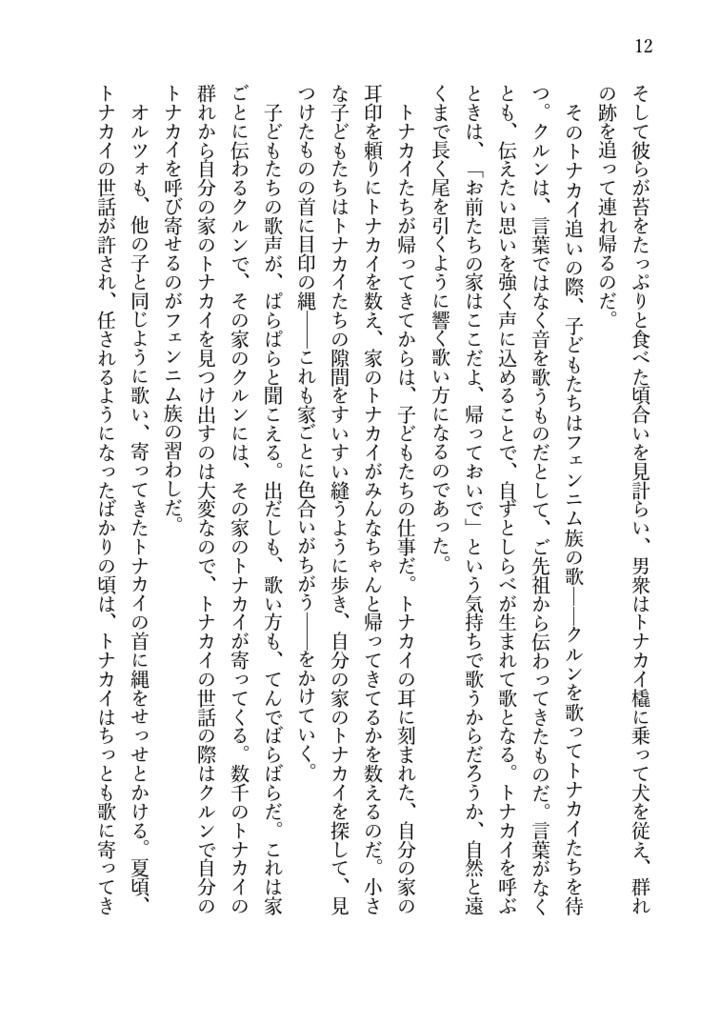 12
そして彼らが苔をたっぷりと食べた頃合いを見計らい、男衆はトナカイ橇に乗って犬を従え、群れ
の跡を追って連れ帰るのだ。
そのトナカイ追いの際、子どもたちはフェンニム族の歌――クルンを歌ってトナカイたちを待
つ。クルンは、言葉ではなく音を歌うものだとして、ご先祖から伝わってきたものだ。言葉がなく
とも、伝えたい思いを強く声に込めることで、自ずとしらべが生まれて歌となる。トナカイを呼ぶ
ときは、「お前たちの家はここだよ、帰っておいで」という気持ちで歌うからだろうか、自然と遠
くまで長く尾を引くように響く歌い方になるのであった。
トナカイたちが帰ってきてからは、子どもたちの仕事だ。トナカイの耳に刻まれた、自分の家の
耳印を頼りにトナカイを数え、家のトナカイがみんなちゃんと帰ってきてるかを数えるのだ。小さ
な子どもたちはトナカイたちの隙間をすいすい縫うように歩き、自分の家のトナカイを探して、見
つけたものの首に目印の縄――これも家ごとに色合いがちがう――をかけていく。
子どもたちの歌声が、ぱらぱらと聞こえる。出だしも、歌い方も、てんでばらばらだ。これは家
ごとに伝わるクルンで、その家のクルンには、その家のトナカイが寄ってくる。数千のトナカイの
群れから自分の家のトナカイを見つけ出すのは大変なので、トナカイの世話の際はクルンで自分の
トナカイを呼び寄せるのがフェンニム族の習わしだ。
オルツォも、他の子と同じように歌い、寄ってきたトナカイの首に縄をせっせとかける。夏頃、
トナカイの世話が許され、任されるようになったばかりの頃は、トナカイはちっとも歌に寄ってき